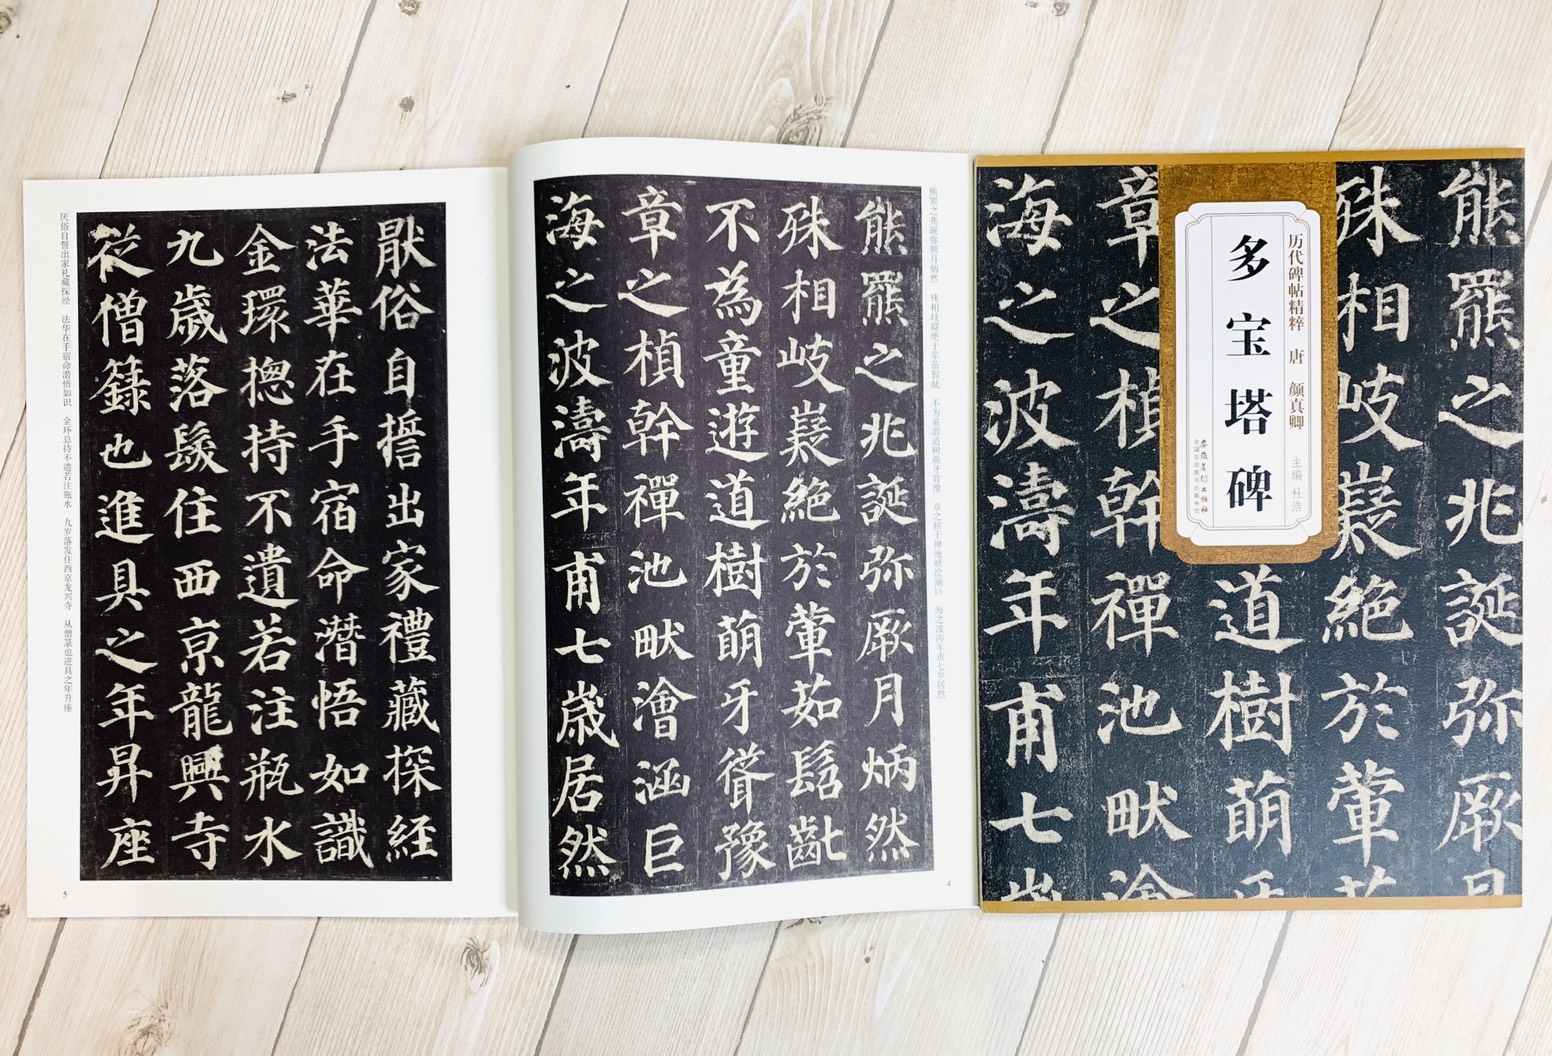 熊羆之兆誕弥厥月
殊相岐嶷絶於葷茹
历代碑帖精粹 唐 颜真卿
主编 杜浩
多宝塔碑
安徽美術出版社
全国百佳图书出版单位
道樹萌牙
章之楨幹禪池畎澮
海之波濤年甫七歳
熊罴之兆诞弥厥月炳然 殊相歧嶷绝于荤茹髫龀 不为童游道树萌牙耸豫 章之桢干禅池畎浍涵巨 海之波涛年甫七岁居然
熊羆之兆誕弥厥月炳然
殊相岐嶷絶於葷茹髫齔
不為童遊道樹萌牙聳豫
章之楨幹禪池畎澮涵巨
海之波濤年甫七歳居然
4
厭俗自誓出家禮藏探經
法華在手宿命潛悟如識
金環揔持不遺若注瓶水
九歳落髮住西京龍興寺
從僧籙也進具之年昇座
厌俗自誓出家礼藏探经 法华在手宿命潜悟如识 金环总持不遗若注瓶水 九岁落发住西京龙兴寺 从僧箓也进具之年升座
5